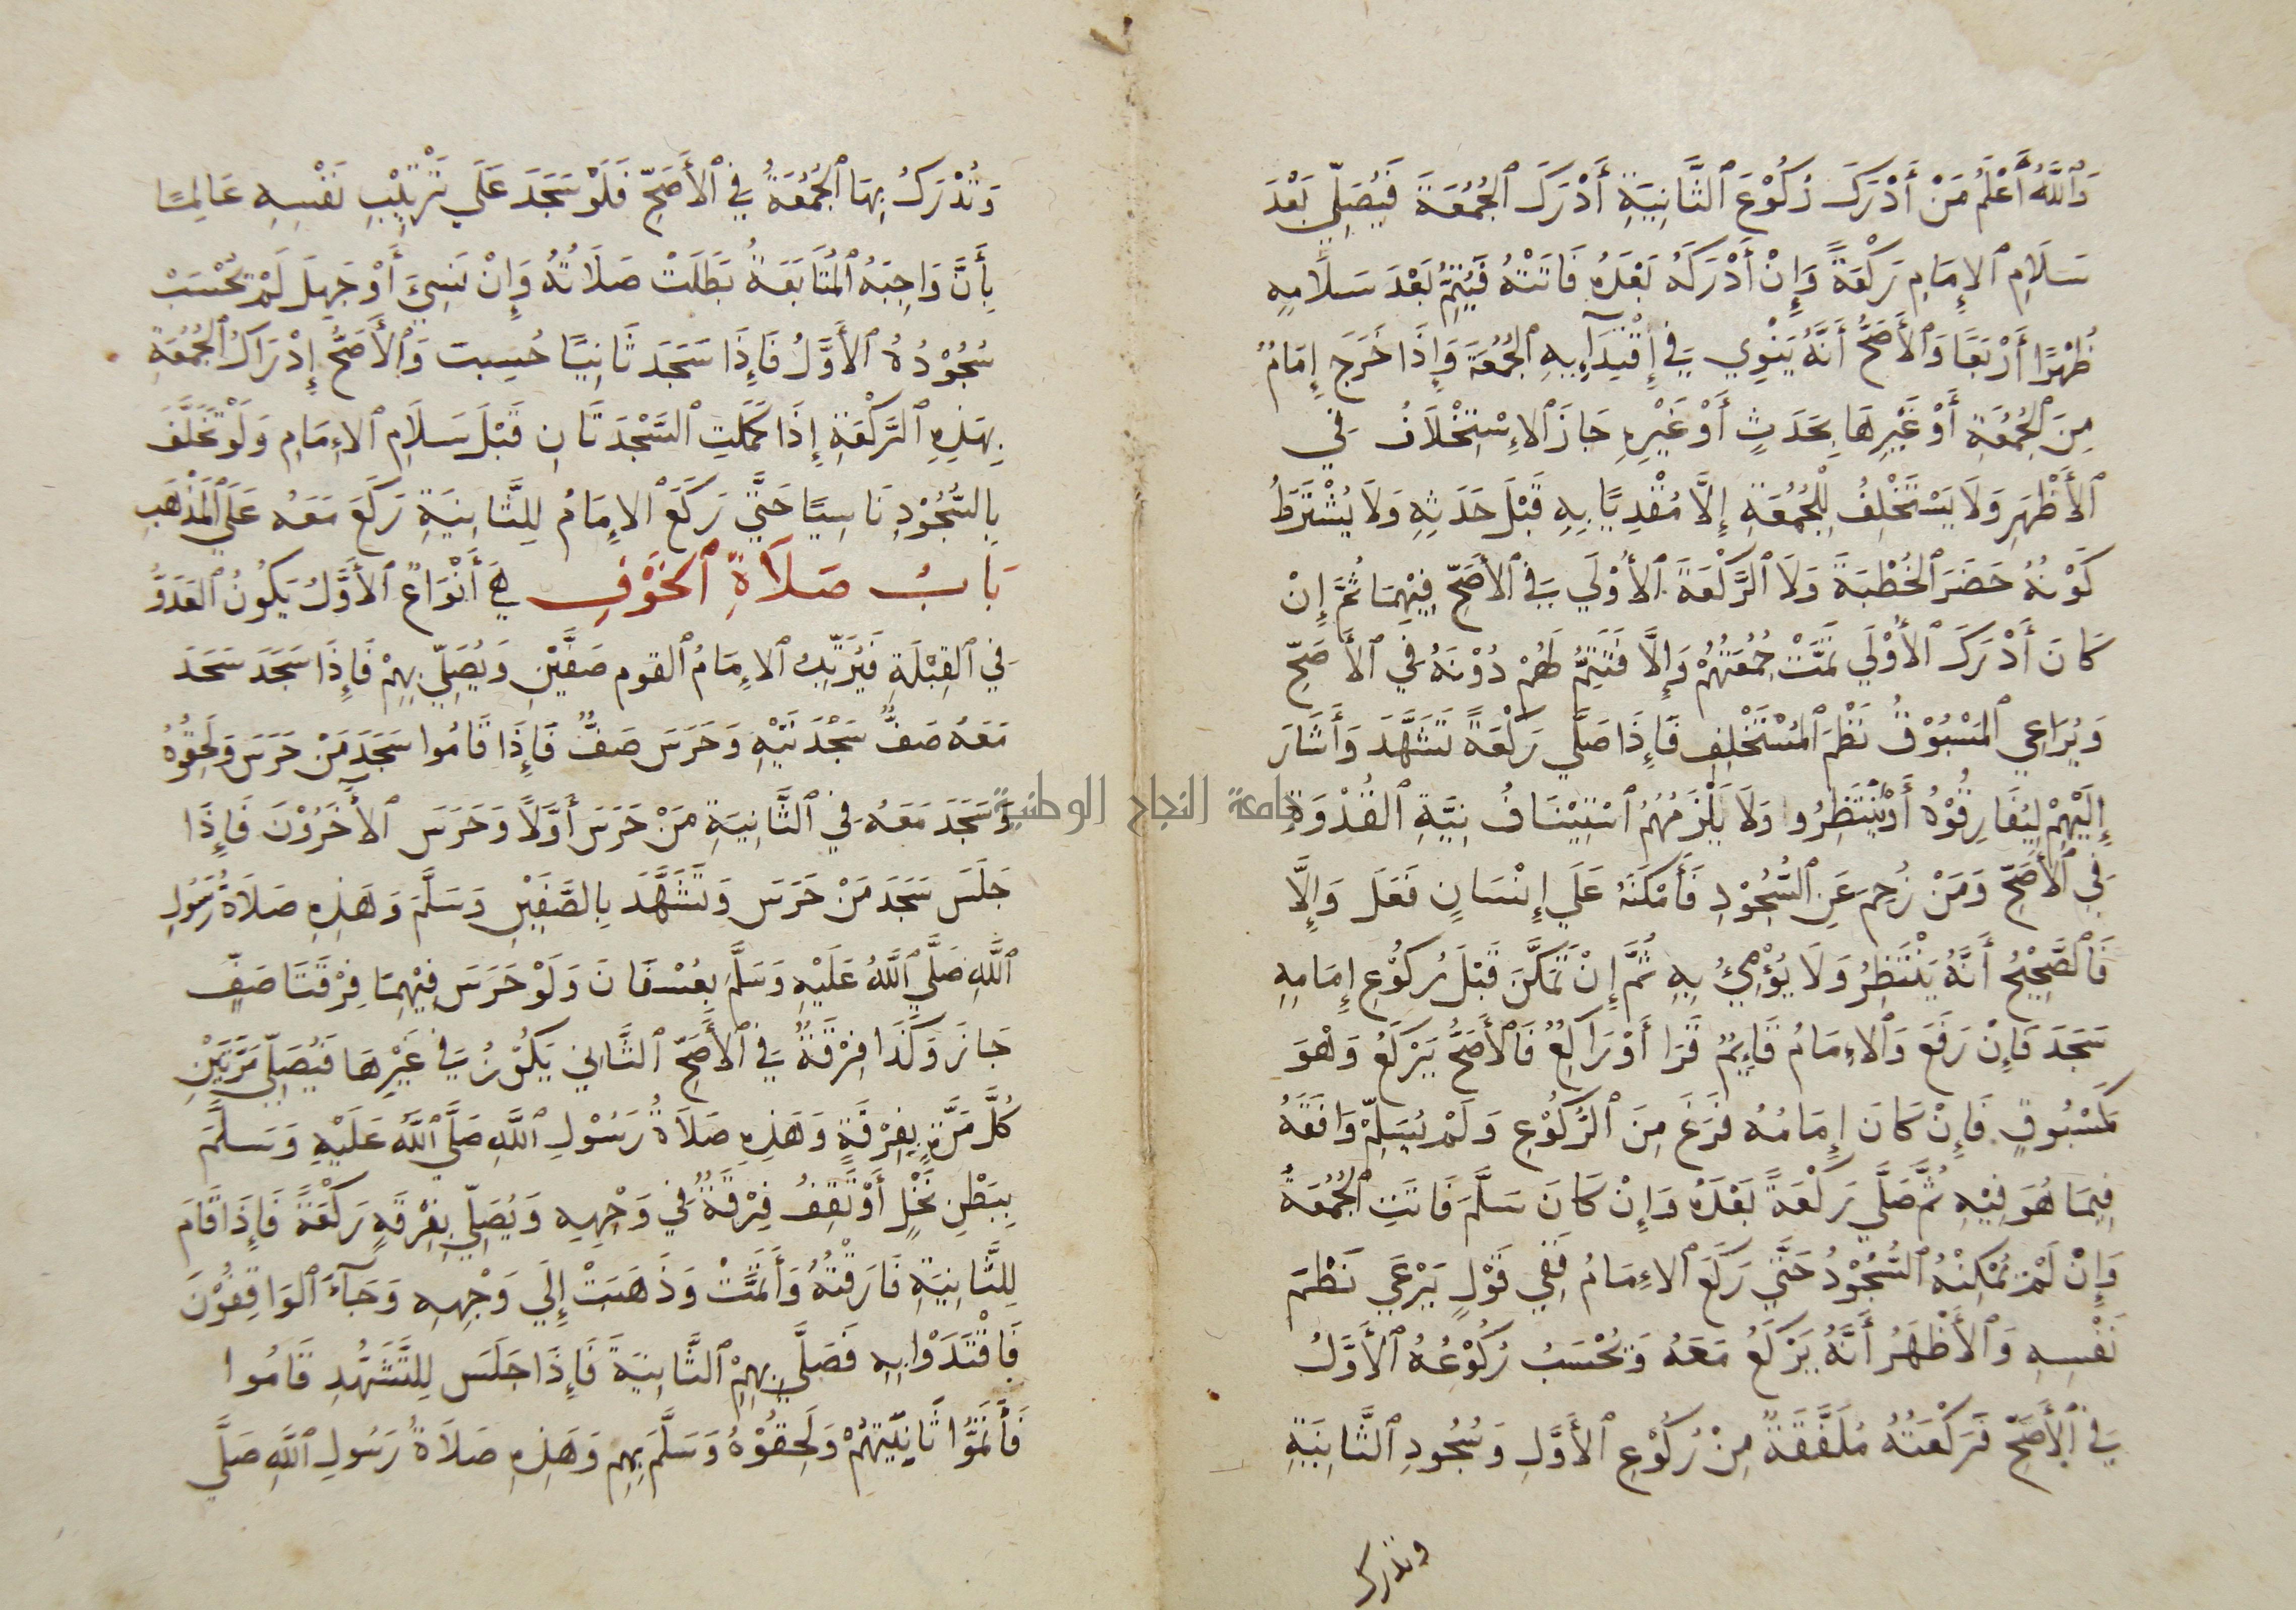 وَٱللَّهُ أَعْلَمُ مَنْ أَدْرَكَ رُكُوْعَ ٱلثَّانِيَةِ أَدْرَكَ ٱلجُمُعَةَ فَيُصَلِّي بَعْدَ
سَلَامِ ٱلإِمَامِ رَكْعَةً وَإِنْ أَدْرَكَهُ بَعْدَهُ فَاتَتْهُ فَيُتِمُّ بَعْدَ سَلَامِهِ
ظُهْرًا أَرْبَعًا وَٱلأَصَحُّ أَنَّهُ يَنْوِي فِي إِقْتِدَآئِهِ ٱلجُمُعَةَ وَإِذَا خَرَجَ إِمَامُ
مِنَ ٱلجُمُعَةِ أَوْ غَيْرِهَا بِحَدَثٍ أَوْ غَيْرِهِ جَازَ ٱلاِسْتِخْلَافُ فِي
ٱلأَظْهَرِ وَلَا يَسْتَخْلِفُ لِلْجُمُعَةِ إِلَّا مُقْتَدِيًا بِهِ قَبْلَ حَدَثِهِ وَلَا يُشْتَرَطُ
كَوْنُهُ حَضَرَ ٱلخُطْبَةَ وَلَا ٱلرَّكْعَةَ ٱلأُوْلَي فِي ٱلأَصَحِّ فِيْهِمَا ثُمَّ إِنْ
كَانَ أَدْرَكَ ٱلأُوْلَي تَمَّتْ جُمُعَتُهُمْ وَإِلَّا فَتَتِمُّ لَهُمْ دُوْنَهُ فِي ٱلأَصَحِّ
وَيُرَاعِي ٱلمَسْبُوْقُ نَظْمَ ٱلمُسْتَخْلِفِ فَإِذَا صَلَّي رَكْعَةً تَشَهَّدَ وَأَشَارَ
إِلَيْهِمْ لِيُفَارِقُوْهُ أَوْ يَنْتَظِرُوا وَلَا يَلْزَمُهُمُ ٱسْتِيْنَافُ نِيَّةِ ٱلقُدْوَةِ
فِي ٱلأَصَحِّ وَمَنْ زُحِمَ عَنِ ٱلسُّجُوْدِ فَأَمْكَنَهُ عَلَي إِنْسَانٍ فَعَلَ وَإِلَّا
فَٱلصَّحِيْحُ أَنَّهُ يَنْتَظِرُ وَلَا يُؤْمِئُ بِهِ ثُمَّ إِنْ تَمَكَّنَ قَبْلَ رُكُوْعِ إِمَامِهِ
سَجَدَ فَإِنْ رَفَعَ وَٱلاِمَامُ قَايِمٌ قَرَا أَوْ رَاكِعٌ فَٱلأَصَحُّ يَرْكَعُ وَهْوَ
كَمَسْبُوقٍ فَإِنْ كَانَ إِمَامُهُ فَرَغَ مِنَ ٱلرُّكُوْعِ وَلَمْ يُسَلِّمْ وَافَقَهُ
فِيمَا هُوَ فِيْهِ ثُمَّ صَلَّي رَكْعَةً بَعْدَهُ وَإِنْ كَانَ سَلَّمَ فَاتَتِ ٱلجُمُعَةُ
وَإِنْ لَمْ يُمْكِنْهُ ٱلسُّجُوْدُ حَتَّي رَكَعَ ٱلاِمَامُ فَفِي قَوْلٍ يَرْعَي نَظْمَ
نَفْسِهِ وَٱلأَظْهَرُ أَنَّهُ يَرْكَعُ مَعَهُ وَيُحْسَبُ رُكُوْعُهُ ٱلأَوَّلُ
فِي ٱلأَصَحِّ فَرَكْعَتُهُ مُلَفَّقَةٌ مِنْ رُكُوْعِ ٱلأَوَّلِ وَسُجُودِ ٱلثَّانِيَةِ
وتدرك
وَتُدْرَكُ بِهَا ٱلجُمُعَةُ فِي ٱلأَصَحِّ فَلَوْ سَجَدَ عَلَي تَرْتِيْبِ نَفْسِهِ عَالِمًا
بِأَنَّ وَاجِبَهُ ٱلمُتَابَعَةُ بَطَلَتْ صَلَاتُهُ وَإِنْ نَسِيَ أَوْ جَهِلَ لَمْ يُحْسَبْ
سُجُوْدُهُ ٱلأَوَّلُ فَإِذَا سَجَدَ ثَانِيًا حُسِبَت وَٱلأَصَحُّ إِدْرَاكُ ٱلجُمُعَةِ
بِهَذِهِ ٱلرَّكْعَةِ إِذَا كَمُلَتِ ٱلسَّجْدَتَانِ قَبْلَ سَلَامِ ٱلاِمَامِ وَلَوْ تَخَلَّفَ
بِالسُّجُوْدِ نَاسِيًا حَتَّي رَكَعَ ٱلاِمَامُ لِلثَّانِيَةِ رَكَعَ مَعَهُ عَلَي ٱلمَذْهَبِ
بَابُ صَلَاةِ ٱلخَوْفِ هِيَ أَنْوَاعٌ ٱلأَوَّلُ يَكُونُ ٱلعَدَوُّ
فِي ٱلقِبْلَةِ فَيُرَتِّبُ ٱلاِمَامُ ٱلقوم صَفَّيْنِ وَيُصَلِّي بِهِمْ فَإِذَا سَجَدَ سَجَدَ
مَعَهُ صَفٌّ سَجْدَتَيْهِ وَحَرَسَ صَفٌّ فَإِذَا قَامُوا سَجَدَ مَنْ حَرَسَ وَلَحِقُوْهُ
وَسَجَدَ مَعَهُ فِي ٱلثَّانِيَةِ مَنْ حَرَسَ أَوَّلًا وَحَرَسَ ٱلآخَرُوْنَ فَإِذَا
جَلَسَ سَجَدَ مَنْ حَرَسَ وَتَشَهَّدَ بِالصَّفَّيْنِ وَسَلَّمَ وَهَذِهِ صَلَاةُ رَسُولِ
ٱللَّهِ صَلَّي ٱللَّهُ عَلَيْهِ وَسَلَّمَ بِعُسْفَانَ وَلَوْ حَرَسَ فِيْهِمَا فِرْقَتَا صَفٍّ
جَازَ وَكَذَا فِرْقَةٌ فِي ٱلأَصَحِّ ٱلثَّانِي يَكُوْنُ فِي غَيْرِهَا فَيُصَلِّي مَرَّتَيْنِ
كُلَّ مَرَّةٍ بِفِرْقَةٍ وَهَذِهِ صَلَاةُ رَسُوْلِ ٱللَّهِ صَلَّي ٱللَّهُ عَلَيْهِ وَسَلَّمَ
بِبَطْنِ نَخْلٍ أَوْ تَقِفُ فِرْقَةٌ فِي وَجْهِهِ وَيُصَلِّي بِفِرْقَةٍ رَكْعَةً فَإِذَا قَامَ
لِلثَّانِيَةِ فَارَقْتُهُ وَأَتَمَّتْ وَذَهَبَتْ إِلَي وَجْهِهِ وَجَآءَ ٱلوَاقِفُوْنَ
فَاقْتَدَوْا بِهِ فَصَلَّي بِهِمِ ٱلثَّانِيَةَ فَإِذَا جَلَسَ لِلتَّشَهُّدِ قَامُوا
فَأَتَمُّوا ثَانِيَتَهُمْ وَلَحِقُوْهُ وَسَلَّمَ بِهِم وَهَذِهِ صَلَاةُ رَسُولِ ٱللَّهِ صَلَّي
جامعة النجاح الوطنية